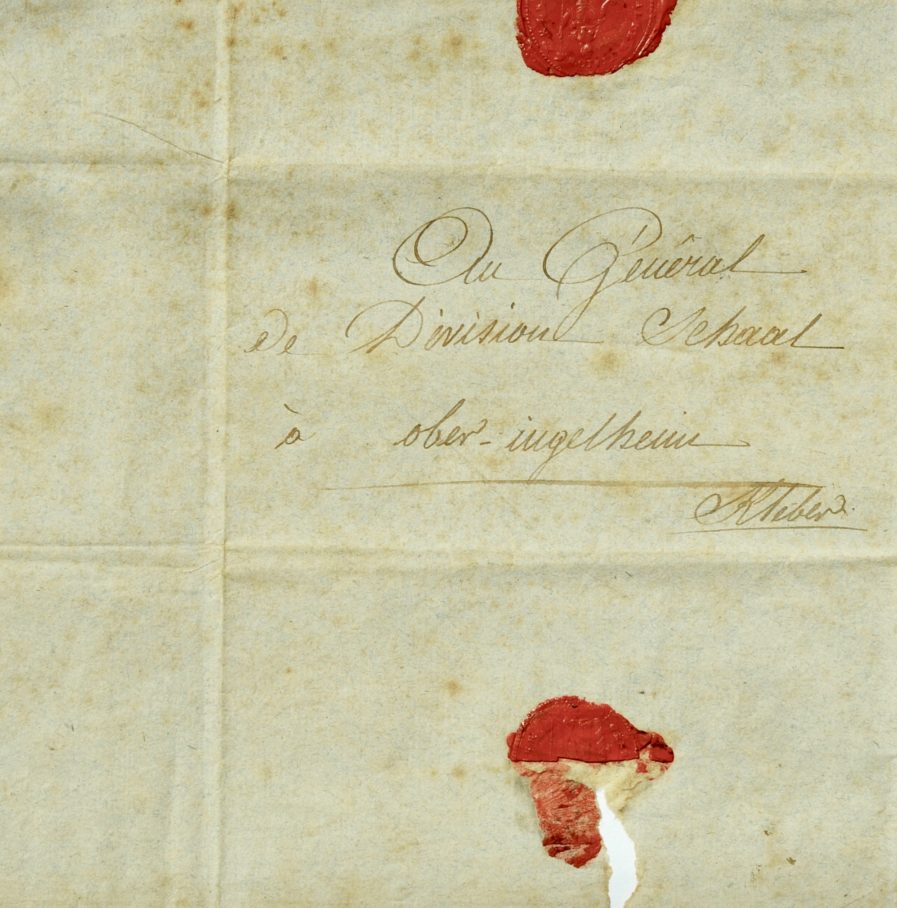 Au Général
De Division Schaal
à ober-ingelheim
Kleber